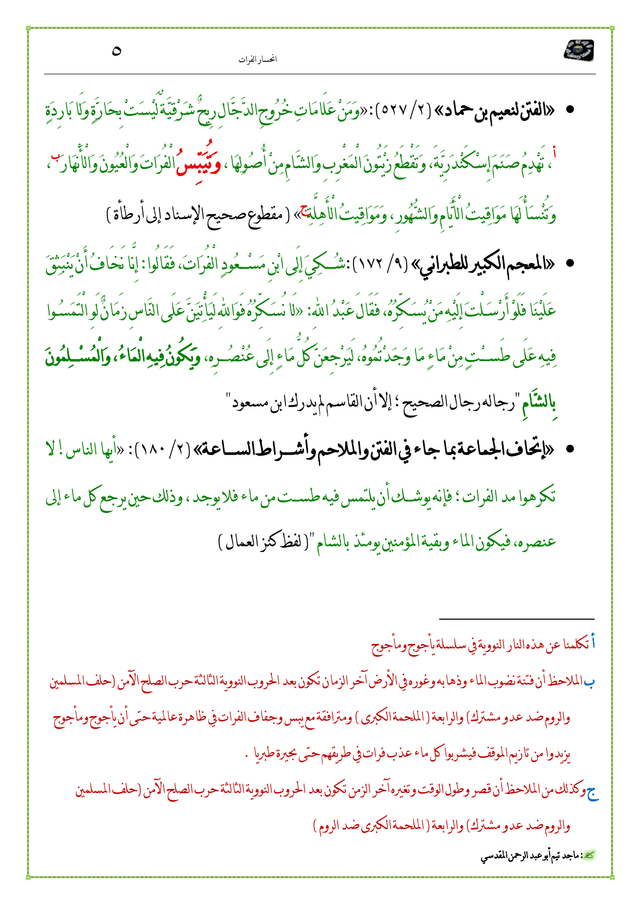 انحسار الفرات
٥
• «الفتن لنعيم بن حماد» (٥٢٧/٢): «وَمَنْ عَلَامَاتِ خُرُوجِ الدَّجَّالِ رِيحٌ شَرْقِيَّةٌ لَيْسَتْ بِحَارَّةٍ وَلَا بَارِدَةٍ
أ، تَهْدِمُ صَنَمَ إِسْكَنْدَرِيَّةَ، وَتَقْطَعُ زَيْتُونَ الْمَغْرِبِ وَالشَّامِ مِنْ أُصُولِهَا، وَتُيَبِّسُ الْفُرَاتَ وَالْعُيُونَ وَالْأَنْهَارَ ب،
وَتُنْسَأُ لَهَا مَوَاقِيتُ الْأَيَّامِ وَالشُّهُورِ، وَمَوَاقِيتُ الْأَهِلَّةِ ج» ( مقطوع صحيح الإسناد إلى أرطأة )
• «المعجم الكبير للطبراني» (٩/ ١٧٢): شُكِيَ إِلَى ابْنِ مَسْعُودٍ الْفُرَاتَ، فَقَالُوا: إِنَّا نَخَافُ أَنْ يَنْبَثِقَ
عَلَيْنَا فَلَوْ أَرْسَلْتَ إِلَيْهِ مَنْ يُسَكِّرُهُ، فَقَالَ عَبْدُ الله: «لَا نُسَكِّرُهُ فَوَالله لَيَأْتِيَنَّ عَلَى النَّاسِ زَمَانٌ لَوِ الْتَمَسُوا
فِيهِ عَلَى طَسْتٍ مِنْ مَاءٍ مَا وَجَدْتُمُوهُ، لَيَرْجِعَنَّ كُلُّ مَاءٍ إِلَى عُنْصُرِهِ، وَيَكُونُ فِيهِ الْمَاءُ، وَالْمُسْلِمُونَ
بِالشَّامِ "رجاله رجال الصحيح ؛ إلا أن القاسم لم يدرك ابن مسعود"
• «إتحاف الجماعة بما جاء في الفتن والملاحم وأشراط الساعة» (٢/ ١٨٠): «أيها الناس ! لا
تكرهوا مد الفرات ؛ فإنه يوشك أن يلتمس فيه طست من ماء فلا يوجد ، وذلك حين يرجع كل ماء إلى
عنصره، فيكون الماء وبقية المؤمنين يومئذ بالشام "( لفظ كنز العمال )
أ تكلمنا عن هذه النار النووية في سلسلة يأجوج ومأجوج
ب الملاحظ أن فتنة نضوب الماء وذهابه وغوره في الأرض آخر الزمان تكون بعد الحروب النووية الثالثة حرب الصلح الآمن (حلف المسلمين
والروم ضد عدو مشترك) والرابعة ( الملحمة الكبرى ) ومترافقة مع يبس وجفاف الفرات في ظاهرة عالمية حتى أن يأجوج ومأجوج
يزيدوا من تازيم الموقف فيشربوا كل ماء عذب فرات في طريقهم حتى بحيرة طبريا .
ج وكذلك من الملاحظ أن قصر وطول الوقت وتغيره آخر الزمن تكون بعد الحروب النووية الثالثة حرب الصلح الآمن (حلف المسلمين
والروم ضد عدو مشترك) والرابعة ( الملحمة الكبرى ضد الروم )
: ماجد تيم أبو عبد الرحمن المقدسي